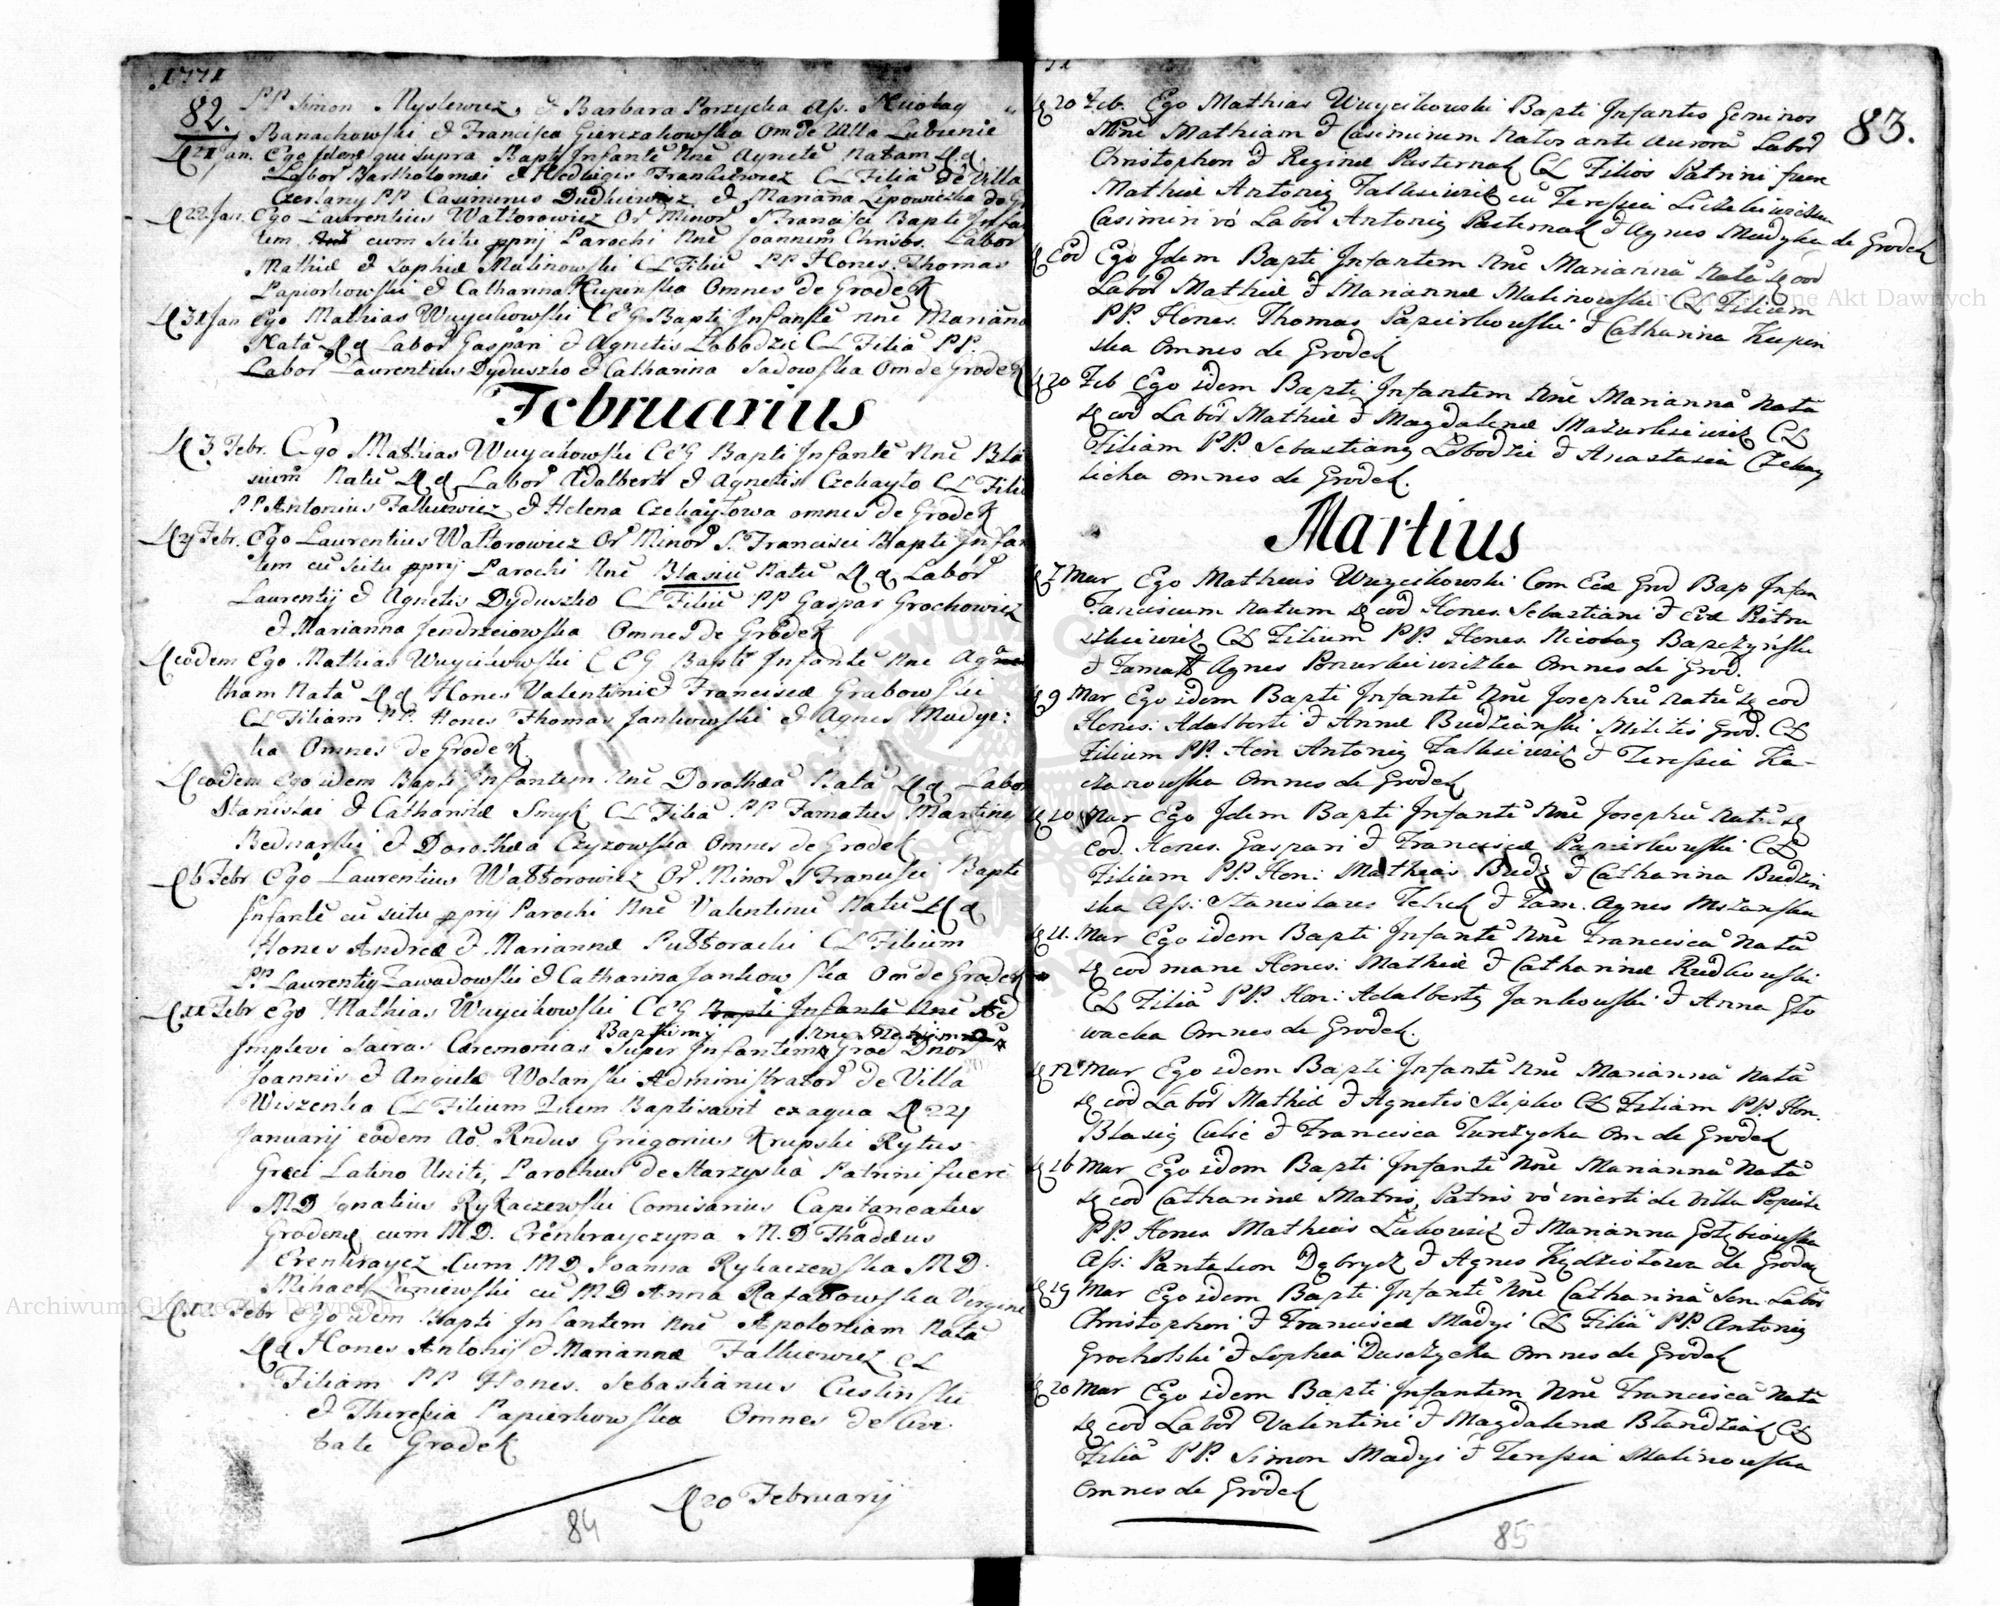 1771
82.
PP Simon Myslewicz, & Barbara Porzycka Ass. Nicolay
Banachowski & Francisca Gierczakowska Om de Villa Lubienie
21 Jan. Ego Idem qui supra Bapti Infantē Nnē Agnetē Natam
Labor Bartholomæi & Hedwigis Frankiewicz CL Filiā de Villa
Czerlany PP Casimirus Dudkiewicz & Marianna Lipowniczka de
22 Jan. Ego Laurentius Wattorowicz Or Minor S Francisci Bapti Infan
tem cum scitu pprij Parochi Nnē Joannem Chrisos. Labor
Mathiæ & Sophiæ Malinowski CL Filiū PP Hones. Thomas
Papiorkowski & Catharina Kupinska Omnes de Grodek
31 Jan Ego Mathias Wuycikowski CEG Bapti Infantē nnē Mariāna
Natā Labor Gaspari & Agnetis Lobodzic CL Filiā PP.
Labor Laurentius Dyduszko & Catharina Sadowska Om de Grodek
Februarius
3 Febr. Ego Mathias Wuycikowski CEG Bapti Infantē Nnē Bla
sium Natū Labor Adalberti & Agnetis Czekayło CL Filiū
PP Antonius Falkiewicz & Helena Czekayłowa omnes de Grodek
Febr. Ego Laurentius Wattorowicz Or Minor S. Francisci Bapti Infan
tem cū scitu pprij Parochi Nnē Blasiū Natū Labor
Laurentij & Agnetis Dyduszko CL Filiū PP Gaspar Grochowicz
& Marianna Jendrzeiowska Omnes de Grodek
eodem Ego Mathias Wuycikowski CEG Bapti Infantē Nnē Aga
tham Natā Hones Valentini & Franciscæ Grabowski
CL Filiam PP. Hones Thomas Jankowski & Agnes Madye:
ka Omnes de Grodek
eodem Ego idem Bapti Infantem Nnē Dorothæā Natā Labor
Stanislai & Catharinæ Smyk CL Filiā PP Famatus Martiny
Bednarski & Dorothea Czyzowska Omnes de Grodek
6 Febr Ego Laurentius Wattorowicz Or. Minor S Francisci Bapti
Infantē cū scitu pprij Parochi Nnē Valentinū Natū
Hones Andreæ & Mariannæ Puttoracki CL Filium
PP. Laurentiy Zawadowski & Catharina Jankowska Om de Grodek
11 Febr Ego Mathias Wuycikowski CEG Bapti Infantē Nnē
Baptismi Nnē
Implevi Sacras Ceremonias Super Infantem Gros Dnor
Joannis & Angelæ Wolanski Administrator de Villa
Wiszenka CL Filium Quem Baptisavit ex aqua
Januarij eodem Ao. Rndus Gregorius Krupski Rytus
Græci Latino Uniti, Parochus de Starzyska Patrini fuere
MD Ignatius Rykaczewski Comisarius Capitaneatus
Grodens cum M.D. Erenkrayczyna M.D Thaddeus
Erenkraycz Cum MD Joanna Rykaczewska MD.
Mihael Luniewski cū MD Anna Rafałowska Virgine
Febr Ego idem Bapti Infantem Nnē Apoloniam Natā
Hones Antonij & Mariannæ Falkiewicz CL
Filiam PP Hones. Sebastianus Cieslinski
& Theresia Papierkowska Omnes de Civi
tate Grodek
20 Februarij
84
71
83.
20 Feb. Ego Mathias Wuycikowski Bapti Infantes Geminos
Nnē Mathiam & Casimirum Natos ante Aurorā Labor
Christophori & Reginæ Pasternak CL Filios Patrini fuere
Mathiæ Antoniy Falkiewicz cū Teressia Liczkiewiczowa
Casimiri vo Labor Antoniy Pasternak & Agnes Madyka de Grodek
Eod Ego Idem Bapti Infantem Nnē Mariannā Natā eod
Labor Mathiæ & Mariannæ Malinowski CL Filiam
PP. Hones. Thomas Papierkowski & Catharina Kupin
ska Omnes de Grodek
20 Feb Ego idem Bapti Infantem Nnē Mariannā Natā
eod Labor Mathiæ & Magdalenæ Mazurkiewicz CL
Filiam PP. Sebastiany Lobodzic & Anastasia Czekay
licha omnes de Grodek.
Martius
7 Mar Ego Mathias Wuycikowski Com Ecæ Grod Bap Infan
Franciscum Natum eod Hones. Sebastiani & Evæ Pietru
szkiewicz CL Filium PP. Hones. Nicolay Barczynski
& Famatt Agnes Ponurkiewiczka Omnes de Grod.
9 Mar Ego idem Bapti Infantē Nnē Josephū Natū eod
Hones: Adalberti & Annæ Budzianski Militis Grod. CL
Filium PP. Hon Antoniy Falkiewicz & Teressia Ka-
czanowska Omnes de Grodek
10 Mar Ego Idem Bapti Infantē Nnē Josephū Natū
Eod. Hones. Gaspari & Franciscæ Papierkowski CL
Filium PP. Hon: Mathias Budz & Catharina Budzin
ska Ass: Stanislaus Teluk & Fam. Agnes Mszanska
11. Mar Ego idem Bapti Infantē Nnē Franciscā Natā
eod mane Hones: Mathiæ & Catharinæ Rudkowski
CL Filiā PP. Hon: Adalberty Jankowski & Anna Gło
wacka Omnes de Grodek.
12 Mar Ego idem Bapti Infantē Nnē Mariannā Natā
eod Labor Mathiæ & Agnetis Slipko CL Filiam PP. Hon.
Blasiy Culic & Francisca Turczycka Om de Grodek
16 Mar Ego idem Bapti Infantē Nnē Mariannā Natā
eod Catharinæ Matris, Patris vo incerti de Villa
PP. Hones Matheus Łukowicz & Marianna Gołębiowska
Ass: Pantaleon Dębrycz & Agnes Kędziołowa de Grodek
19 Mar Ego idem Bapti Infantē Nnē Catharinā Sen. Labor
Christophori & Franciscæ Madyi CL Filiā PP. Antoniy
Grocholski & Sophia Duszycka Omnes de Grodek
20 Mar Ego idem Bapti Infantem Nnē Franciscā Natā
eod Labor Valentini & Magdalenæ Blandziak CL
Filiā PP. Simon Madyi & Teressia Malinowska
Omnes de Grodek
85
Archiwum Główne Akt Dawnych
Archiwum Główne Akt Dawnych